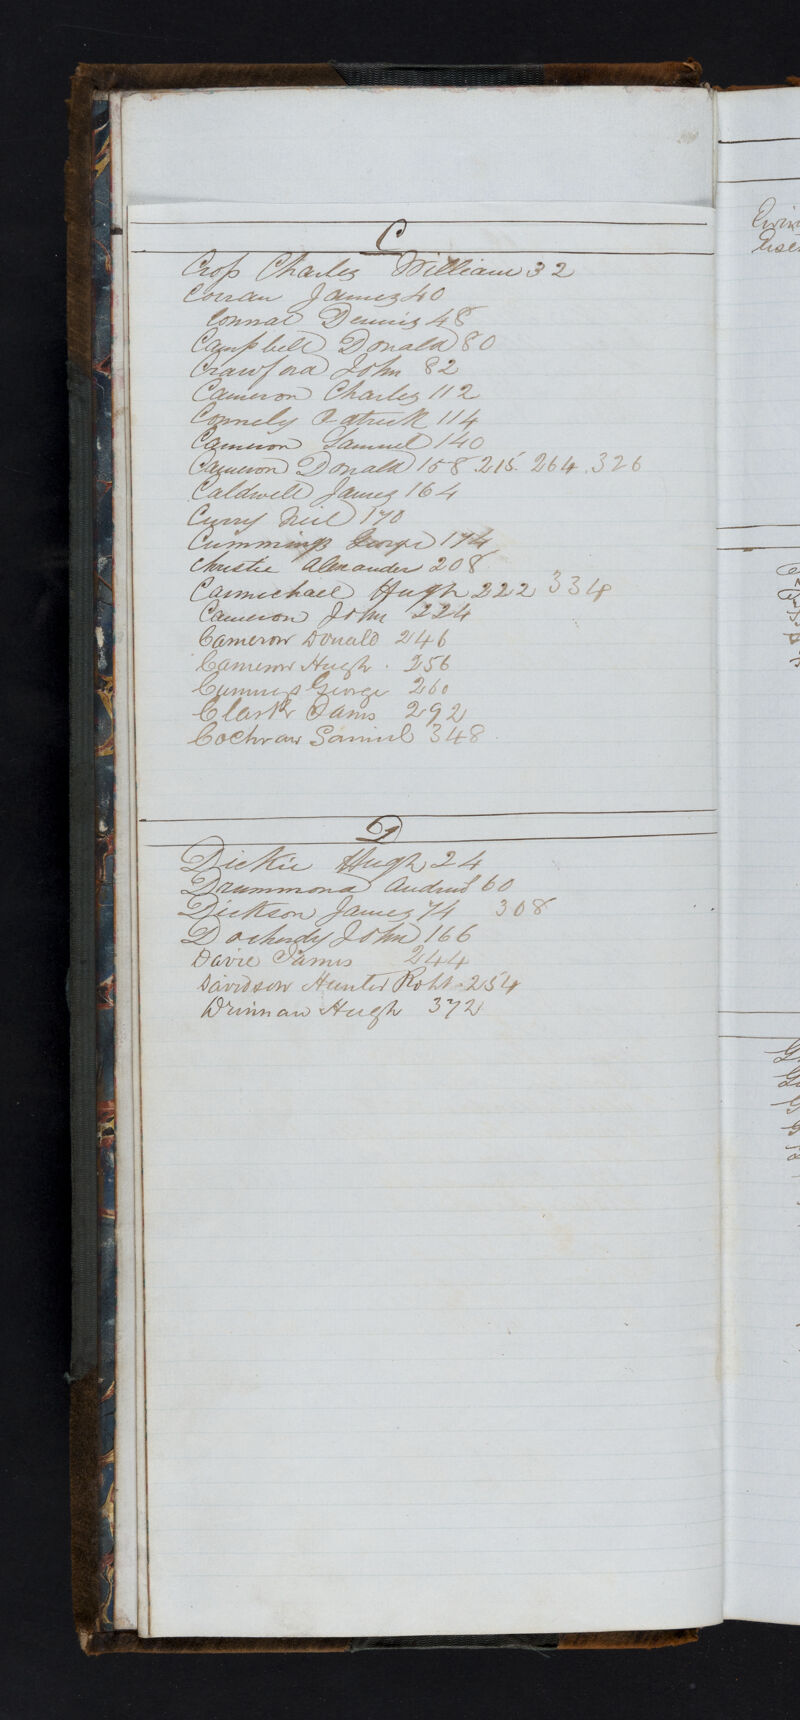 C
Cross Charles William 32
Corran James 40
Connar Dennis 48
Campbell Donald 80
Crawford John 82
Cameron Charles 112
Connely Patrick 114
Cameron Samuel 140
Cameron Donald 158 215. 264. 326
Caldwell James 164
Curry Neil 170
Cummings George 174
Christie Alexander 208
Carmichael Hugh 222 334
Cameron John 224
Cameron Donald 246
Cameron Hugh. 256
George 260
Clark James 292
Cochran Samuel 348
D
Dickie Hugh 24
Drummond Andrew 60
Dickson James 74 308
Docherdy John 166
Davie James 244
Davidson Hunter Robt. 254
Drinnan Hugh 372